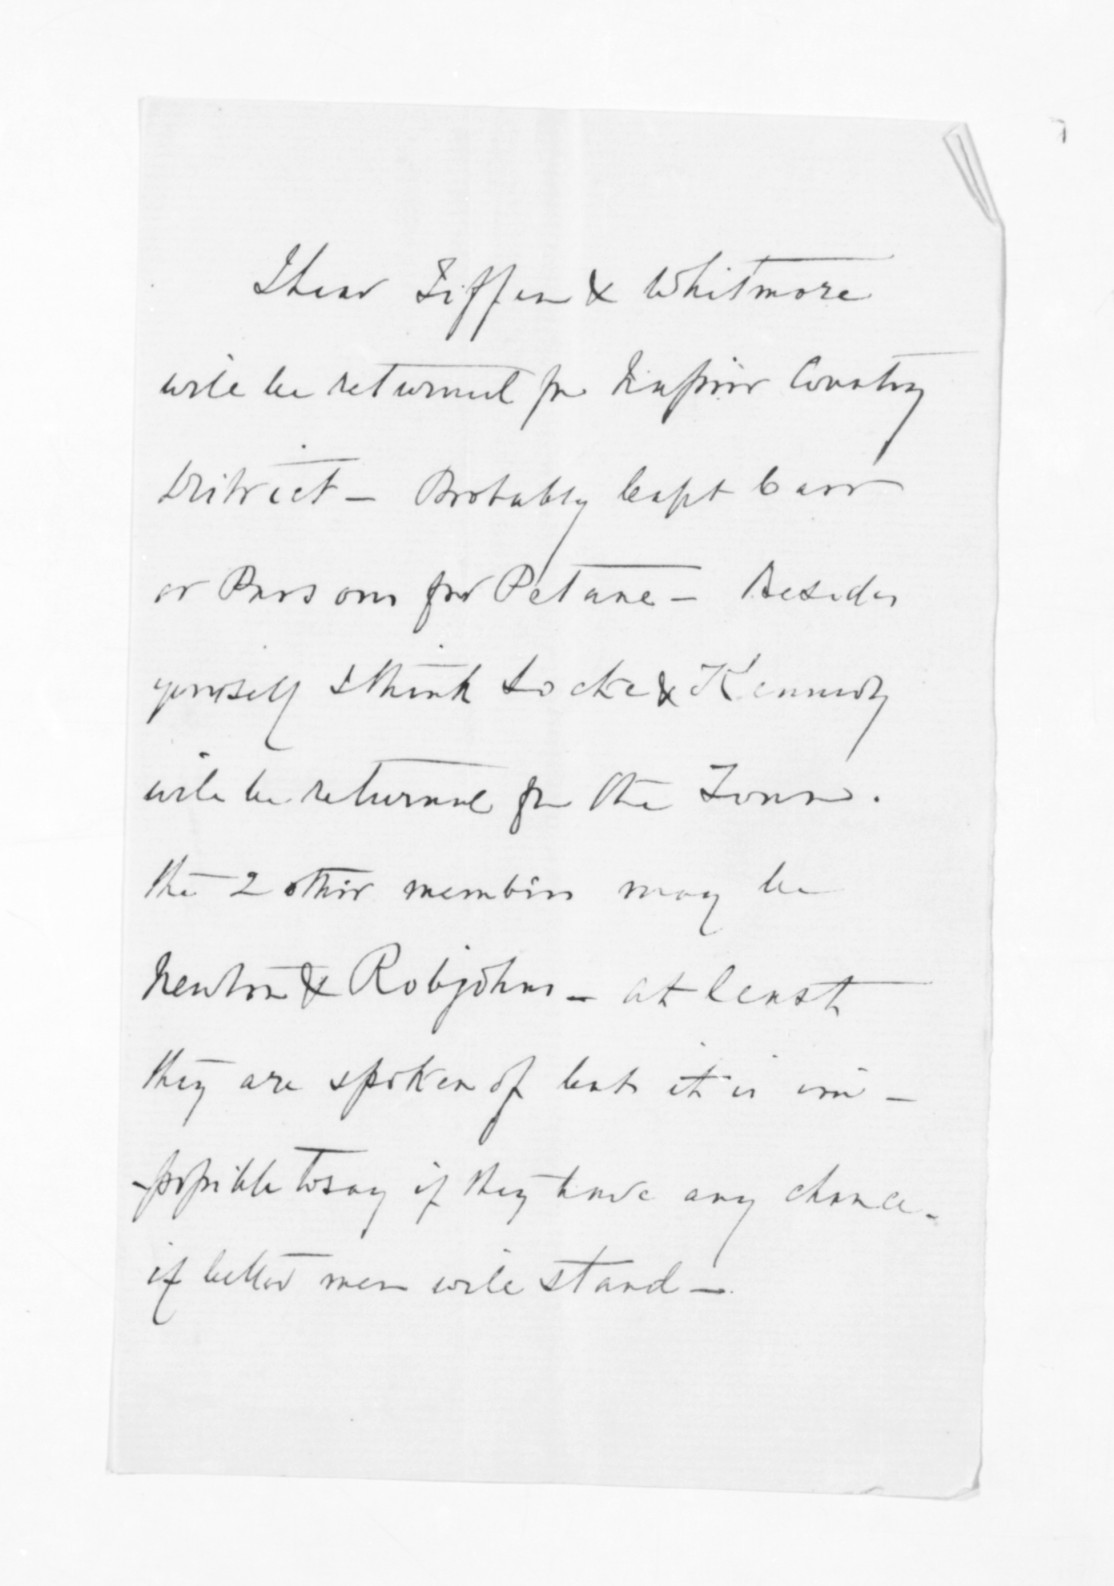 I hear Tiffen & Whitmore
will be returned for Napier Country
District - Probably Capt Carr
or Parsons for Petane - Besides
yourself I think Locke & Kennedy
will be returned for the Town.
the 2 other members may be
Newton & Robjohns - at least
they are spoken of but it is im -
- possible to say if they have any chance -
if better men will stand -